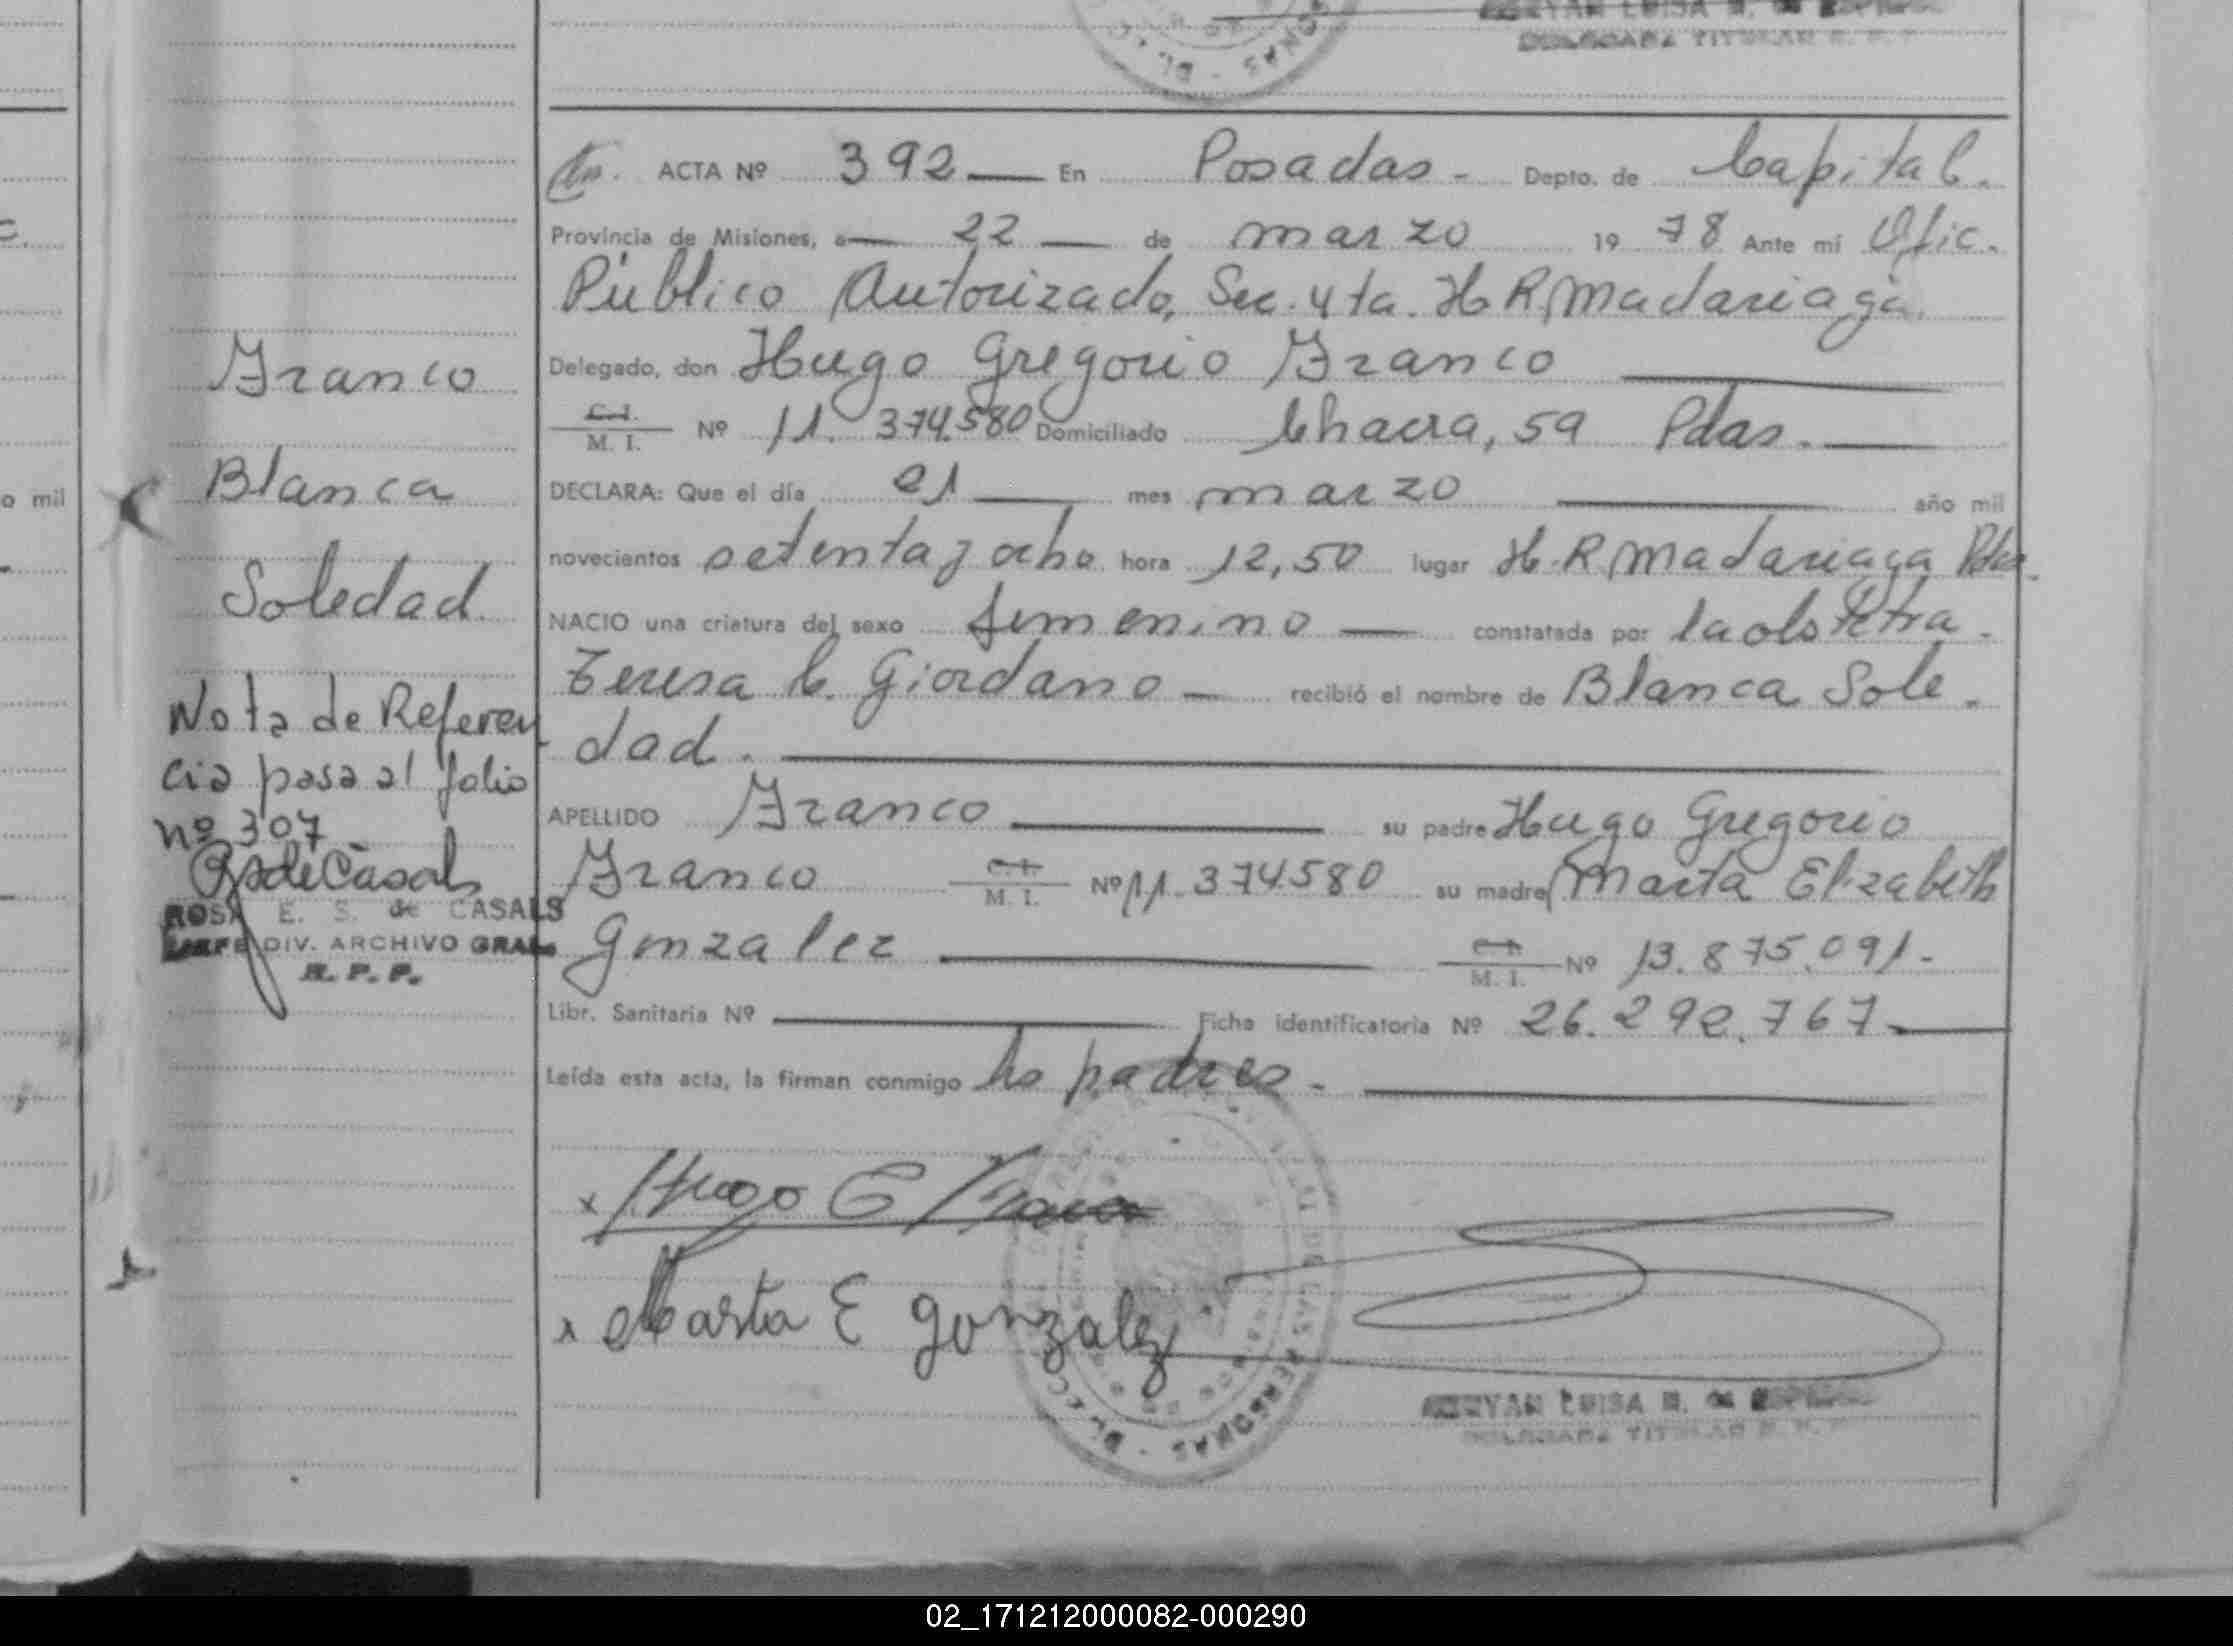 ACTA Nº 392 En Posadas - Depto. de Capital.
Provincia de Misiones, a 22 de marzo 19 78 Ante mí Ofic.
Público Autorizado, Sec. 4ta. H R Madariaga.
Delegado, don Hugo Gregorio Franco
C.I. M. I. Nº 11. 374.580 Domiciliado Chacra, 59 Pdas.
DECLARA: Que el día 21 mes marzo año mil
novecientos setenta y ocho hora 12,50 lugar H. R Madariaga Pdas.
NACIO una criatura del sexo femenino constatada por la obstetra.
Teresa C. Giordano recibió el nombre de Blanca Sole-
dad.
APELLIDO Franco su padre Hugo Gregorio
Franco C.I. M. I. Nº 11. 374580 su madre Marta Elizabeth
Gonzalez C.I. M. I. Nº 13.875.091.-
Libr. Sanitaria Nº Ficha identificatoria Nº 26.292.767
Leída esta acta, la firman conmigo los padres.-
x Hugo G Franco
x Marta E Gonzalez
LUISA
TITULAR
Franco
Blanca
Soledad.
Nota de Referen
cia pasa al folio
nº 307
RSdeCasals
ROSA E. S. de CASALS
JEFE DIV. ARCHIVO GRAL.
R. P. P.
o mil
02_171212000082-000290